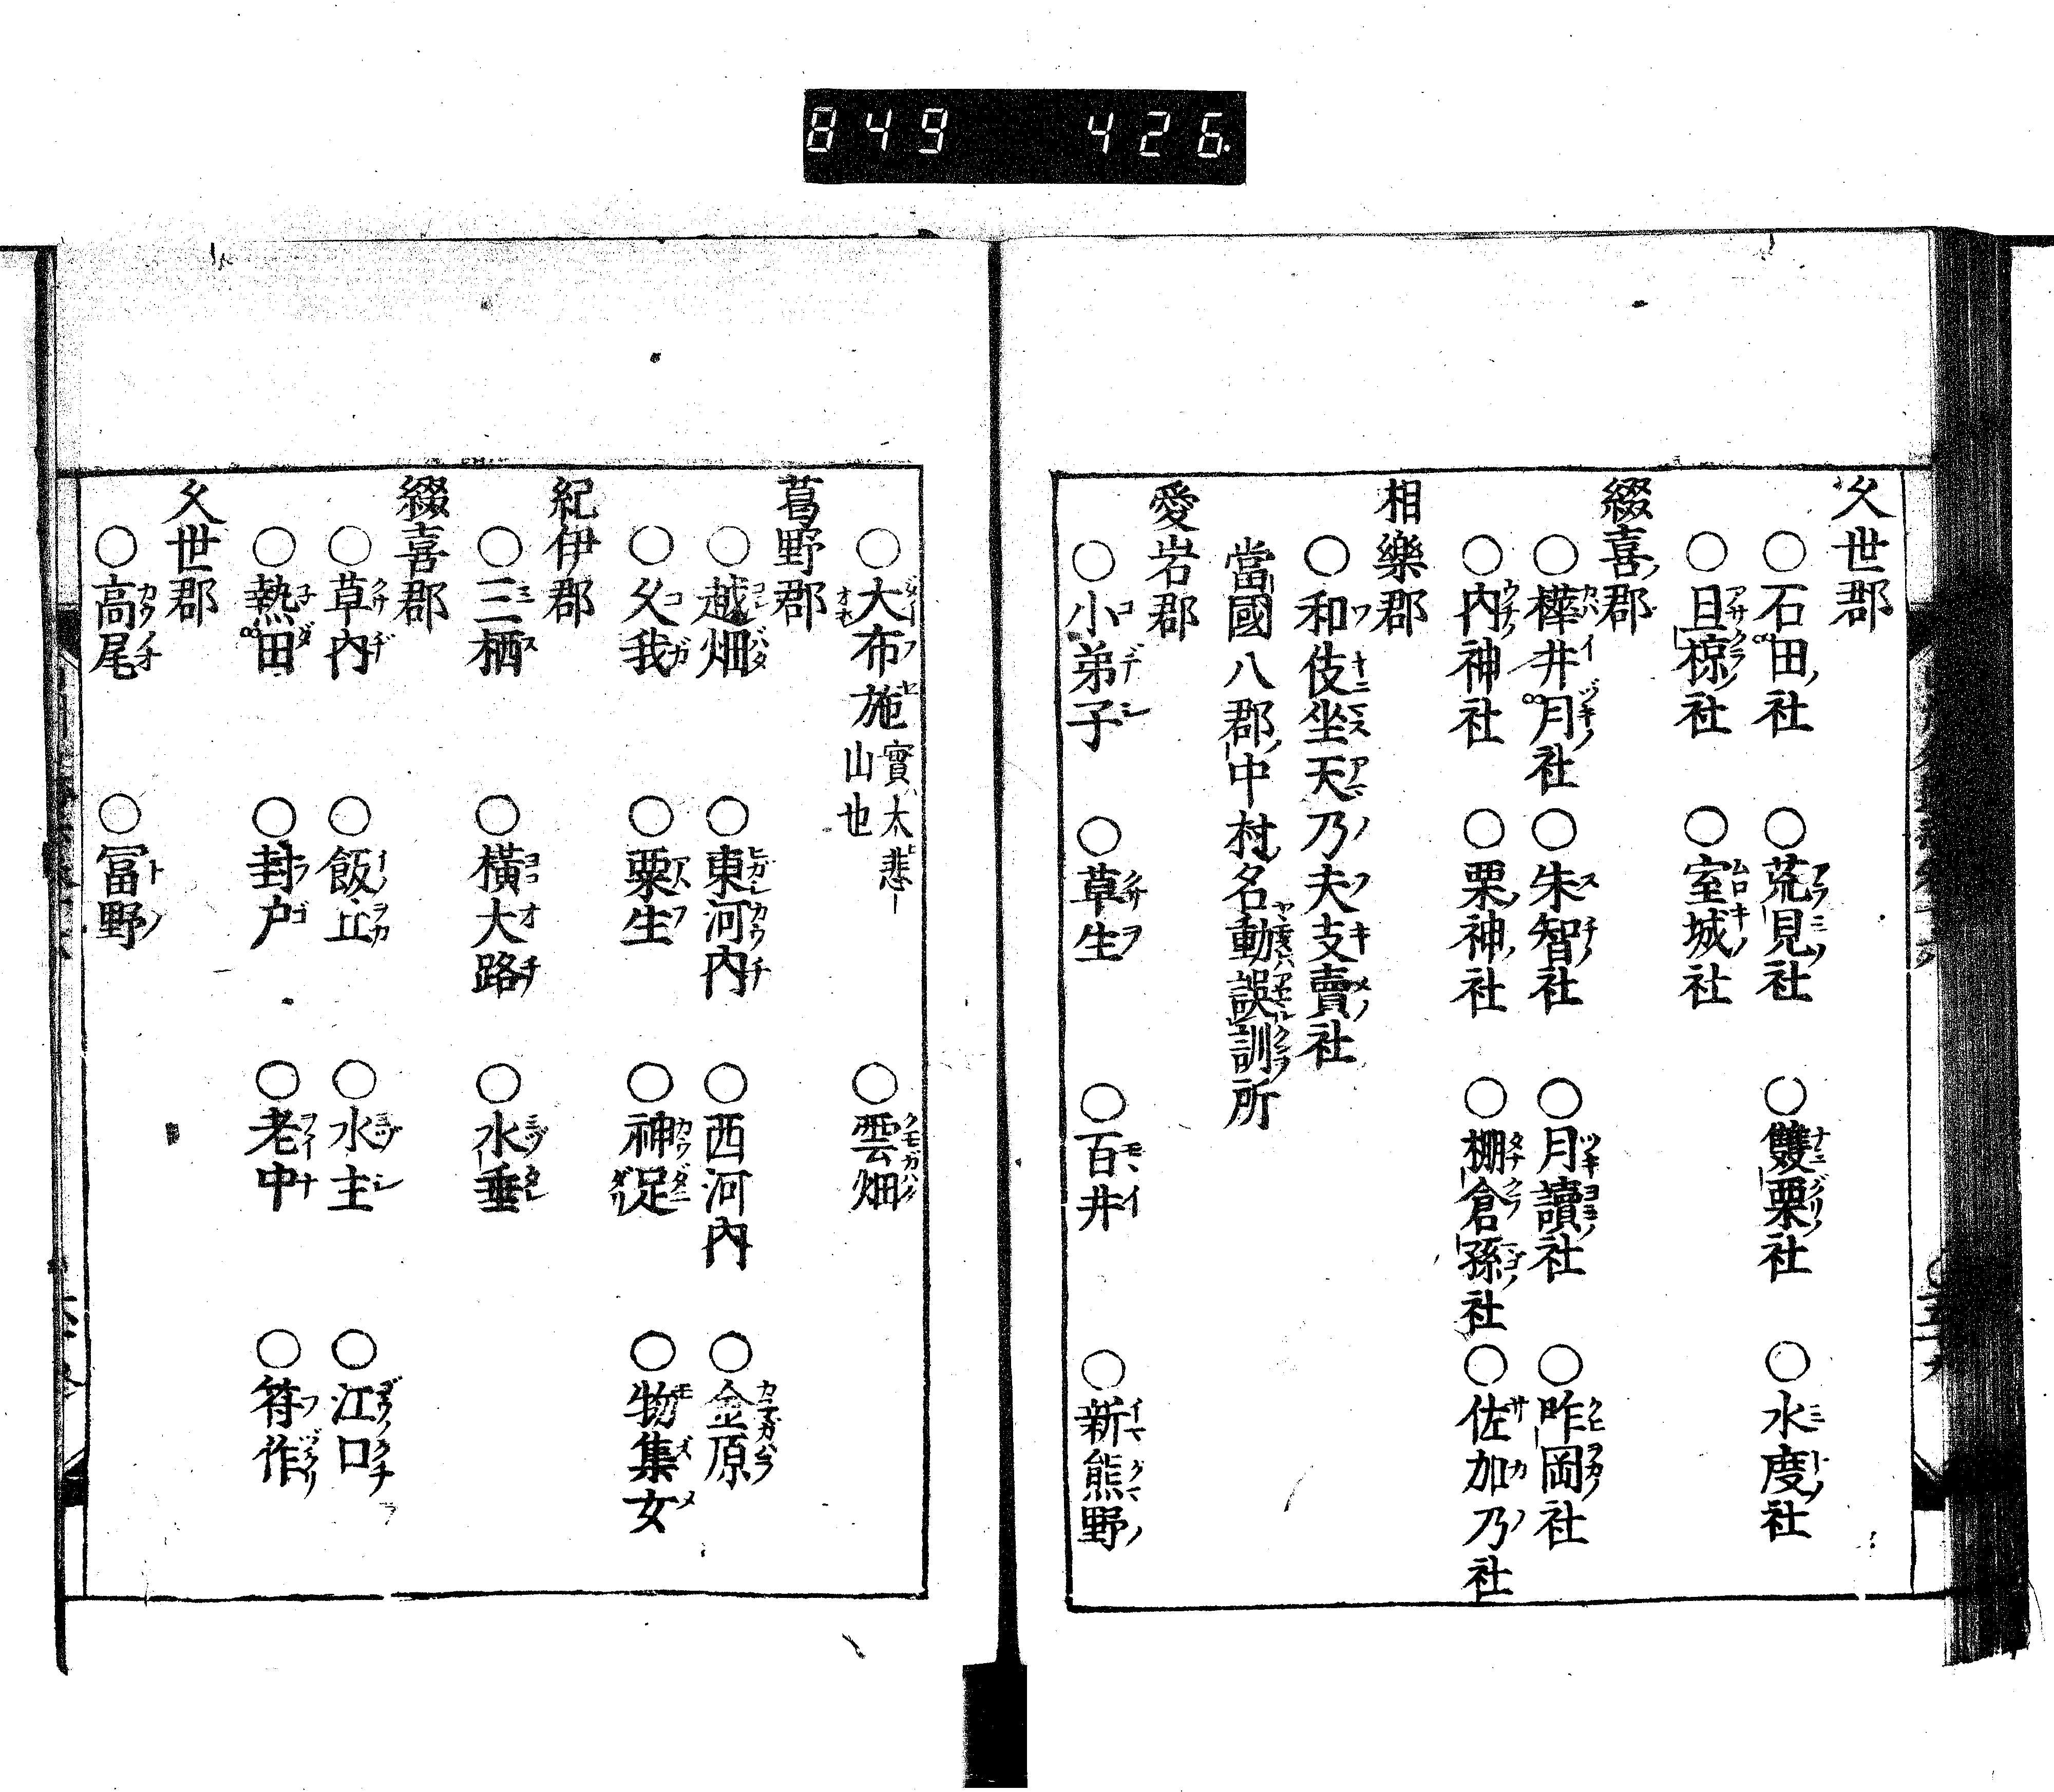 849 426
久世郡
○石田社 ○荒見社 ○雙栗社 ○水度社
○且椋社 ○室城社
綴喜郡
○樺井月社 ○朱智社 ○月讀社 ○咋岡社
○内神社 ○栗神社 ○棚倉孫社 ○佐加乃社
相樂郡
○和伎坐天乃夫支賣社
當國八郡中村名動誤訓所
愛岩郡
○小弟子 ○草生 ○百井 ○新熊野
○大布施實大悲山也 ○雲畑
葛野郡
○越畑 ○東河内 ○西河内 ○金原
○久我 ○粟生 ○神足 ○物集女
紀伊郡
○三栖 ○橫大路 ○水垂
綴喜郡
○草内 ○飯丘 ○水主 ○江口
○熱田 ○封戸 ○老中 ○符作
久世郡
○高尾 ○冨野